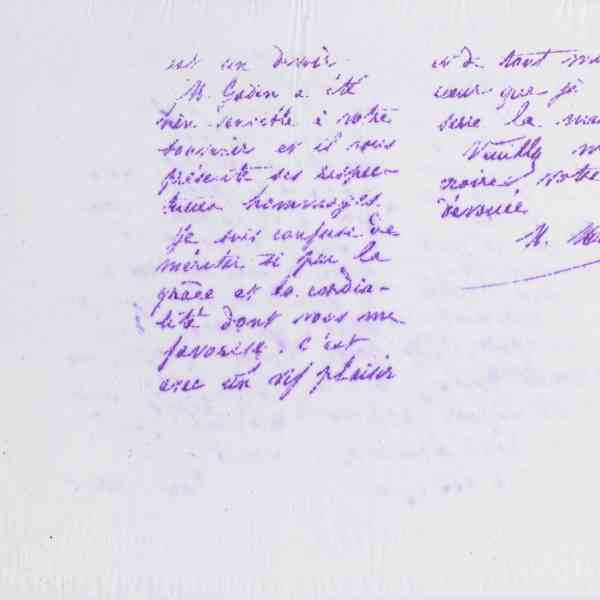 est un devoir.
M. Godin a été
très sensible à votre
souvenir et il vous
présente ses respec-
tueux hommages.
Je suis confuse de
mériter si peu la
grâce et la cordia-
lité dont vous me
favorisez. C'est
avec un vif plaisir
et de tout mon
cœur que je
serre la main
Veuillez me
croire votre
dévouée